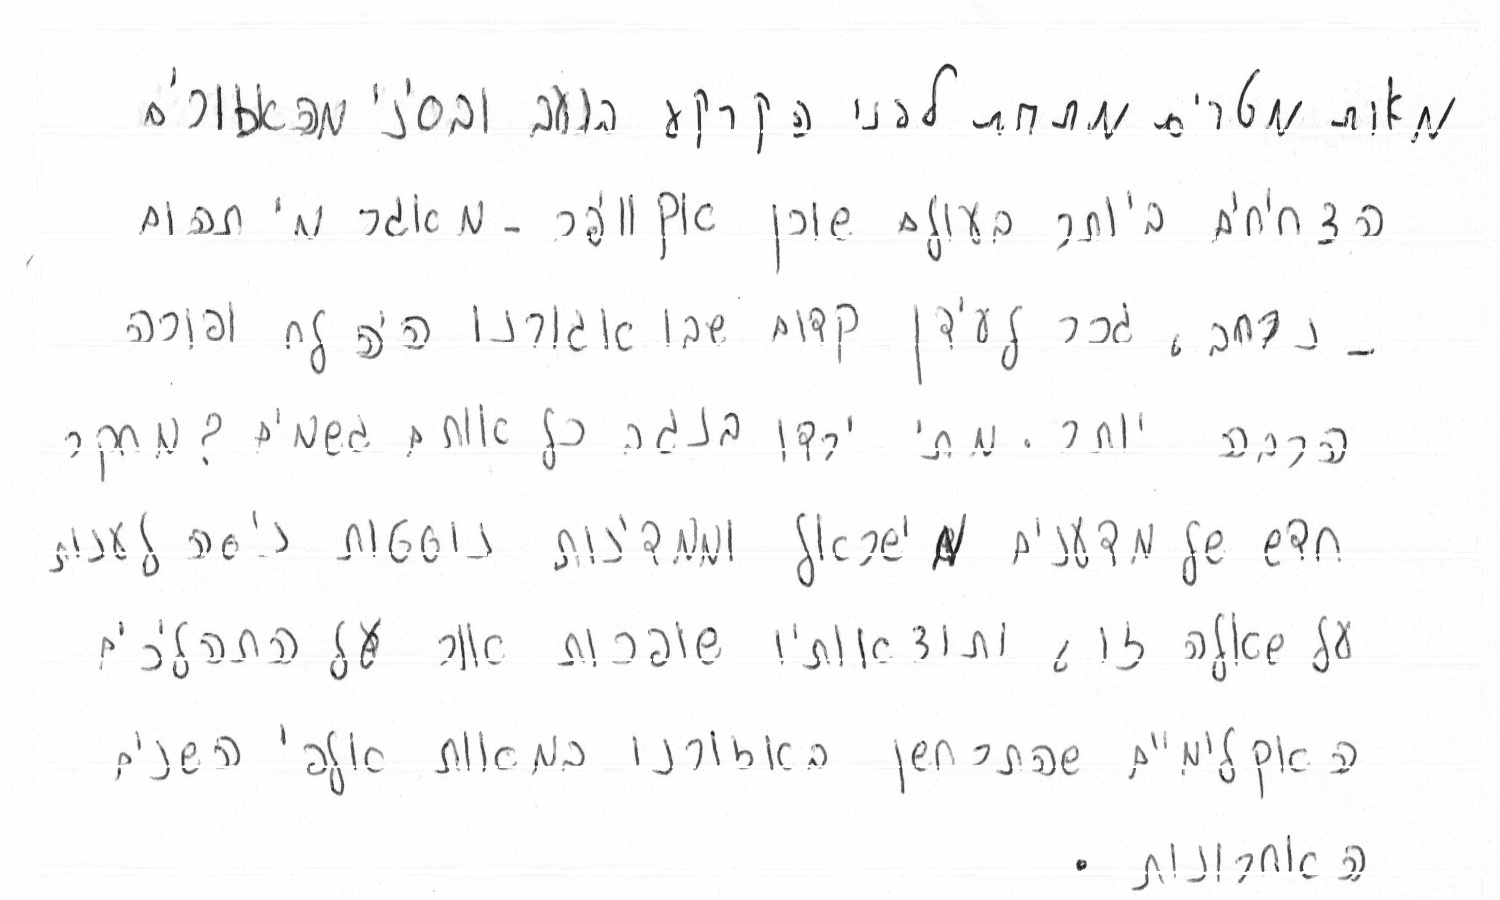 מאות מטרים מתחת לפני הקרקע בנגב ובסיני מהאזורים
הצחיחים ביותר בעולם שוכן אקוויפר - מאגר מי תהום
- נרחב, זכר לעידן קדום שבו אזורנו היה לח ופורה
הרבה יותר. מתי ירדו בנגב כל אותם גשמים? מחקר
חדש של מדענים מישראל וממדינות נוספות ניסה לענות
על שאלה זו, ותוצאותיו שופכות אור על התהליכים
האקלימיים שהתרחשו באזורנו במאות אלפי השנים
האחרונות.